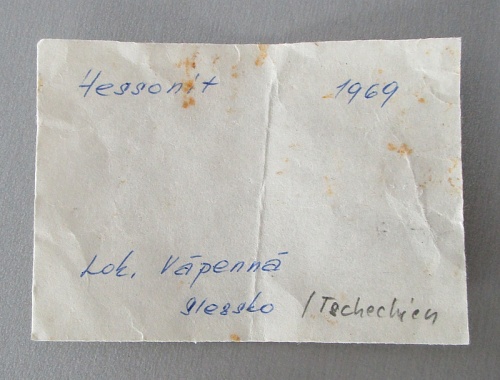 Hessonit 1969
Lok. Vápenná
Slessko /Tschechien